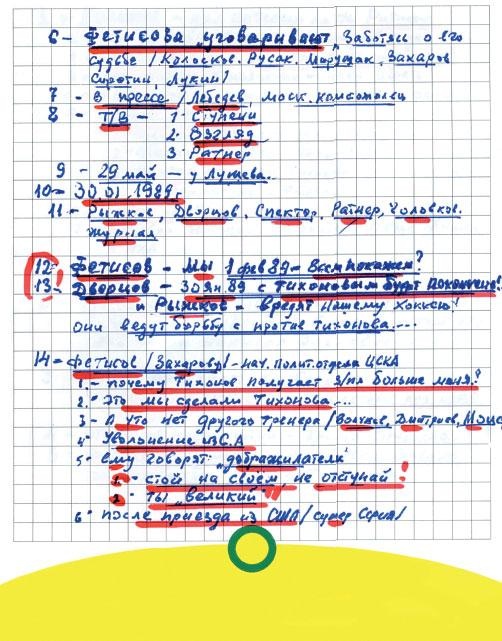 6 - Фетисова „уговаривают", Заботясь о его
судьбе / Колосков. Русак. Марущак, Захаров
Сиротин, Лукин /
7 - В прессе / Лебедев, моск. комсомолец
8 - Т/В - 1. Ступени
2. Взгляд
3. Ратнер
9 - 29 май - у Лужева..
10 - 30.01 1989г.
11 - Рыжков, Дворцов, Спектор, Ратнер, Чоловков.
журнал
12 - Фетисов - Мы 1 фев 89 - Всем покажем?
13 - Дворцов - 30 ян. 89 с Тихоновым будет покончено!
и Рыжков - вредят нашему хоккею!
они ведут борьбу с против Тихонова....
14 - Фетисов / Захарову / - нач. полит. отдела ЦСКА
1 - почему Тихонов получает з/пл больше меня?
2. Это мы сделали Тихонова...
3 - А что нет другого тренера / Волчков, Дмитриев,
4. Увольнение из С.А
5 - ему говорят „доброжилатели"
1 - стой на своём, не отступай!
2 - ты „великий"
6 - после приезда из США / супер серия /